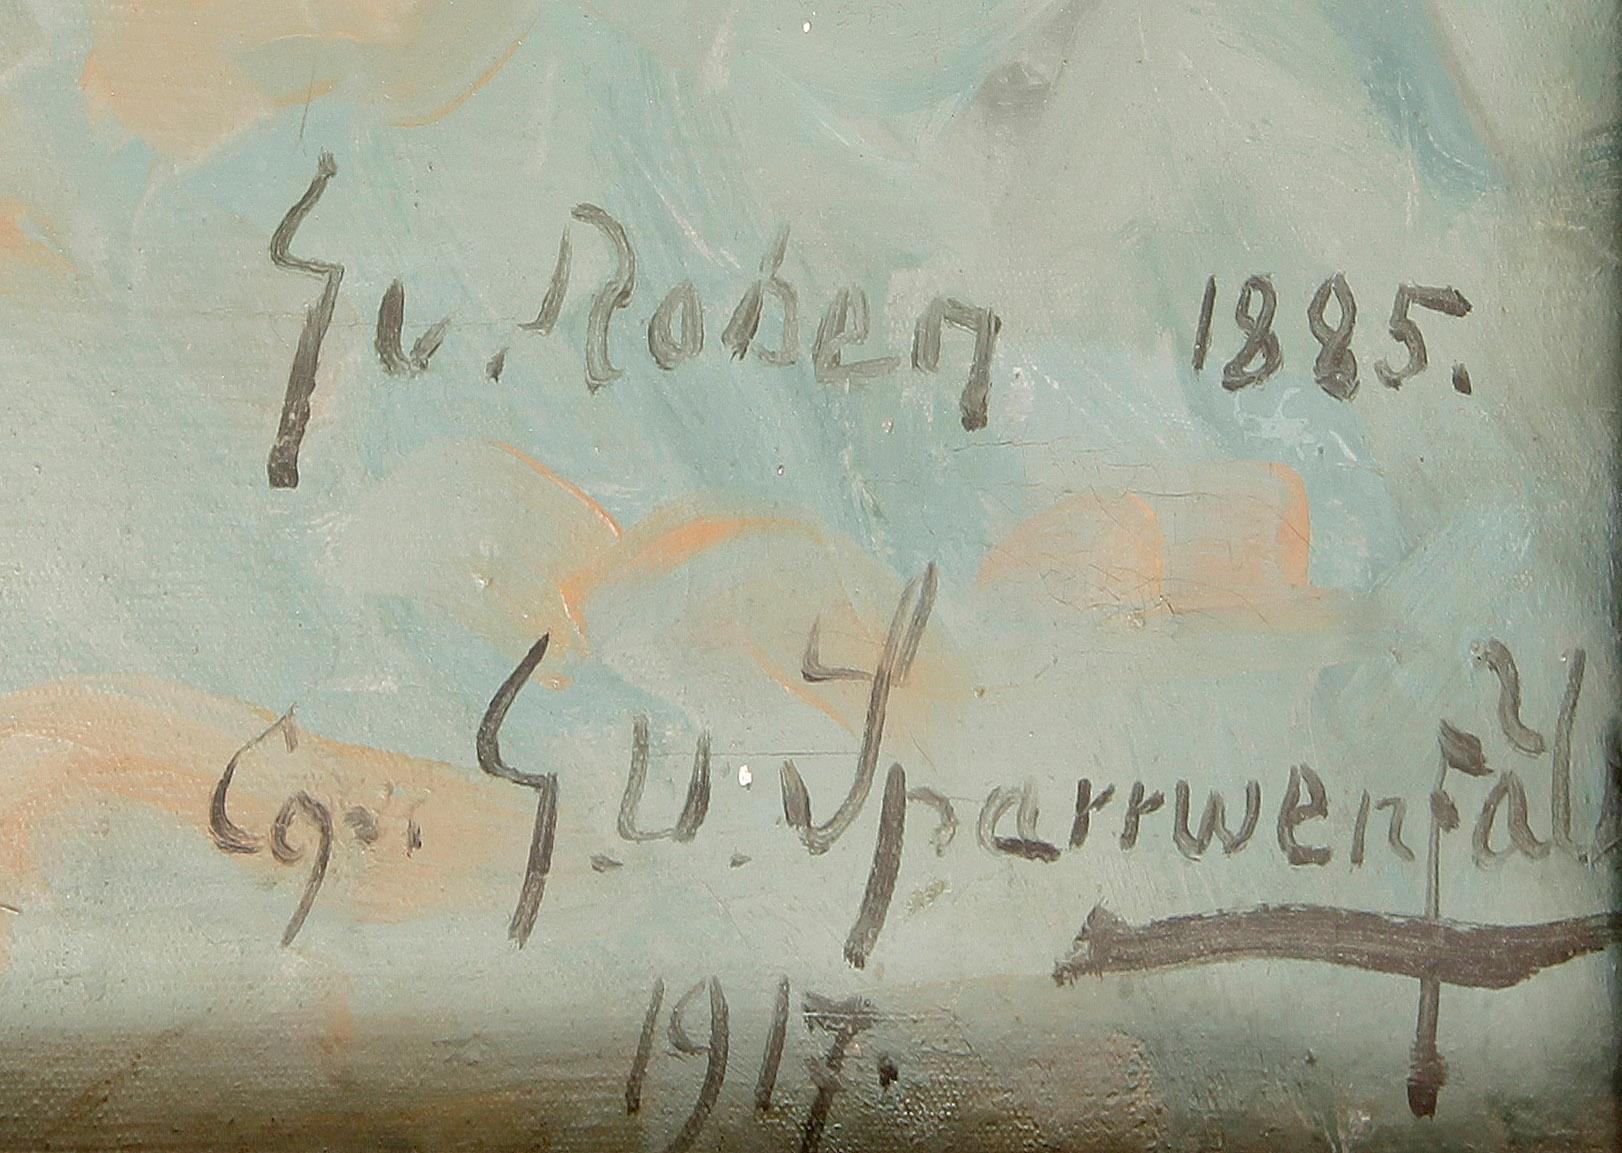 G v. Rosen 1885.
G. U. Sparrwenfäl
1917.